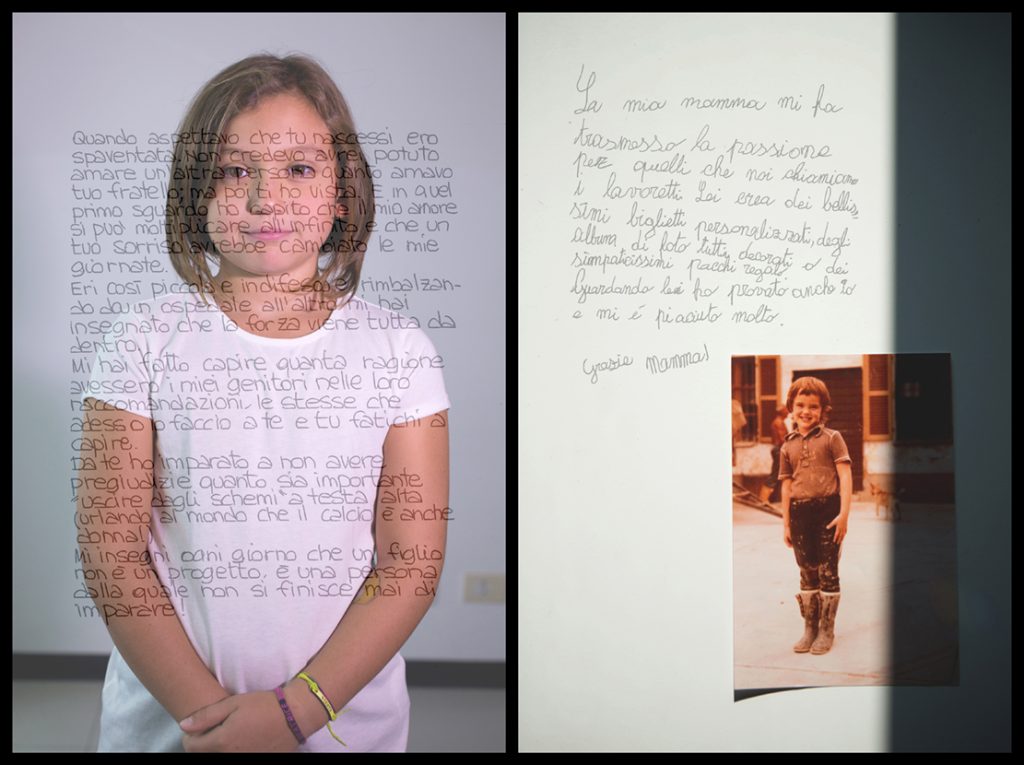 Quando aspettavo che tu nascessi ero
spaventata. Non credevo avrei potuto
amare un'altra persona quanto amavo
tuo fratello, ma poi ti ho vista. E in quel
primo sguardo ho capito che il mio amore
si può moltiplicare all'infinito e che un
tuo sorriso avrebbe cambiato le mie
giornate.
Eri così piccola e indifesa e, rimbalzan-
do da un ospedale all'altro, mi hai
insegnato che la forza viene tutta da
dentro.
Mi hai fatto capire quanta ragione
avessero i miei genitori nelle loro
raccomandazioni, le stesse che
adesso io faccio a te e tu fatichi a
capire.
Da te ho imparato a non avere
pregiudizi e quanto sia importante
"uscire dagli schemi" a testa alta
(urlando al mondo che il calcio è anche
donna!).
Mi insegni ogni giorno che un figlio
non è un progetto, è una persona
dalla quale non si finisce mai di
imparare!
La mia mamma mi ha
trasmesso la passione
per quelli che noi chiamiamo
i lavoretti. Lei crea dei bellis
simi biglietti personalizzati, degli
album di foto tutti decorati o dei
simpaticissimi pacchi regalo.
Guardando lei ho provato anche io
e mi é piaciuto molto.
Grazie Mamma!